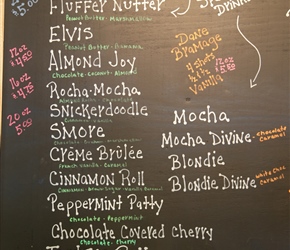 Fluffer Nutter
Peanut Butter - Marshmallow
Elvis
Peanut Butter - Banana
Almond Joy
Chocolate - Coconut - Almond
Rocha-Mocha
Snickerdoodle
Smore
Créme Brûlée
French Vanilla - Caramel
Cinnamon Roll
Cinnamon - Brown Sugar - Vanilla
Peppermint Patty
Chocolate - Peppermint
Chocolate Covered Cherry
Chocolate - Cherry
12oz
16oz
$4.75
20oz
Drink
Dane
Bramage
4 shots
Vanilla
Mocha
Mocha Divine - Chocolate Caramel
Blondie
Blondie Divine - White Choc Caramel